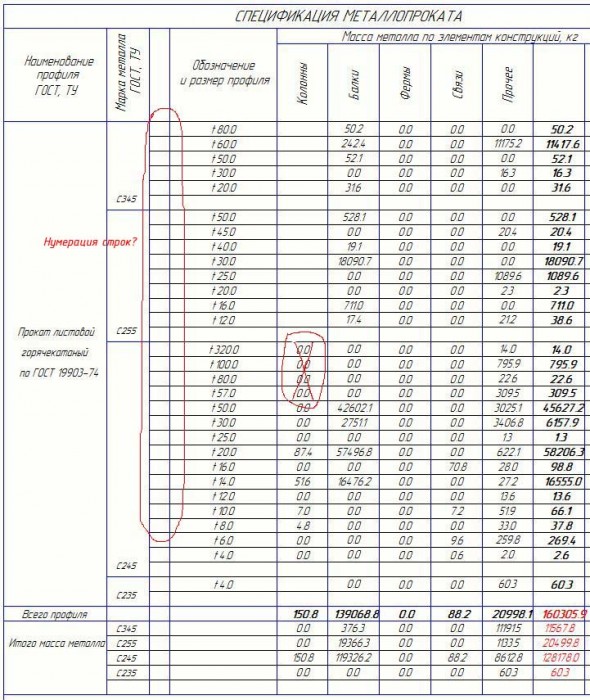 СПЕЦИФИКАЦИЯ МЕТАЛЛОПРОКАТА
Наименование профиля ГОСТ, ТУ
Марка металла ГОСТ, ТУ
Обозначение и размер профиля
Масса металла по элементам конструкций, кг
Колонны Балки Фермы Связи Прочее
t 80.0 50.2 0.0 0.0 0.0 50.2
t 60.0 242.4 0.0 0.0 11175.2 11417.6
t 50.0 52.1 0.0 0.0 0.0 52.1
t 30.0 0.0 0.0 0.0 16.3 16.3
t 20.0 31.6 0.0 0.0 0.0 31.6
С345
t 50.0 528.1 0.0 0.0 0.0 528.1
Нумерация строк?
t 45.0 0.0 0.0 0.0 20.4 20.4
t 40.0 19.1 0.0 0.0 0.0 19.1
t 30.0 18090.7 0.0 0.0 0.0 18090.7
t 25.0 0.0 0.0 0.0 1089.6 1089.6
t 20.0 0.0 0.0 0.0 2.3 2.3
t 16.0 711.0 0.0 0.0 0.0 711.0
t 12.0 17.4 0.0 0.0 21.2 38.6
С255
Прокат листовой
горячекатаный
по ГОСТ 19903-74
t 320.0 0.0 0.0 0.0 0.0 14.0 14.0
t 100.0 0.0 0.0 0.0 0.0 795.9 795.9
t 80.0 0.0 0.0 0.0 0.0 22.6 22.6
t 57.0 0.0 0.0 0.0 0.0 309.5 309.5
t 50.0 0.0 42602.1 0.0 0.0 3025.1 45627.2
t 30.0 0.0 2751.1 0.0 0.0 3406.8 6157.9
t 25.0 0.0 0.0 0.0 0.0 1.3 1.3
t 20.0 87.4 57496.8 0.0 0.0 622.1 58206.3
t 16.0 0.0 0.0 0.0 70.8 28.0 98.8
t 14.0 51.6 16476.2 0.0 0.0 27.2 16555.0
t 12.0 0.0 0.0 0.0 0.0 13.6 13.6
t 10.0 7.0 0.0 0.0 7.2 51.9 66.1
t 8.0 4.8 0.0 0.0 0.0 33.0 37.8
t 6.0 0.0 0.0 0.0 9.6 259.8 269.4
t 4.0 0.0 0.0 0.0 0.6 2.0 2.6
С245
t 4.0 0.0 0.0 0.0 60.3 60.3
С235
Всего профиля 150.8 139068.8 0.0 88.2 20998.1 160305.9
Итого масса металла
С345 0.0 376.3 0.0 0.0 11191.5 11567.8
С255 0.0 19366.3 0.0 0.0 1133.5 20499.8
С245 150.8 119326.2 0.0 88.2 8612.8 128178.0
С235 0.0 0.0 0.0 0.0 60.3 60.3